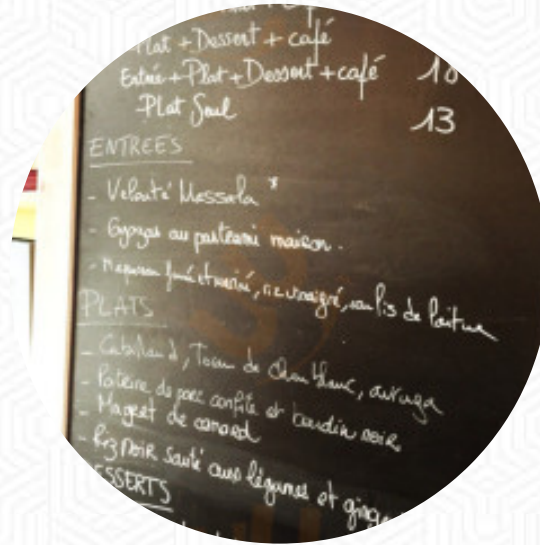 Plat + Dessert + café
Entrée + Plat + Dessert + café
Plat Seul 13
ENTREES
- Velouté Massala *
- au maison.
- fumé et mariné, riz vinaigré, sur lis de laitue
PLATS
- Cabillaud, de Chou blanc, avruga
- Poitrine de porc confite et boudin noir
- Magret de canard
- Riz noir sauté aux légumes et